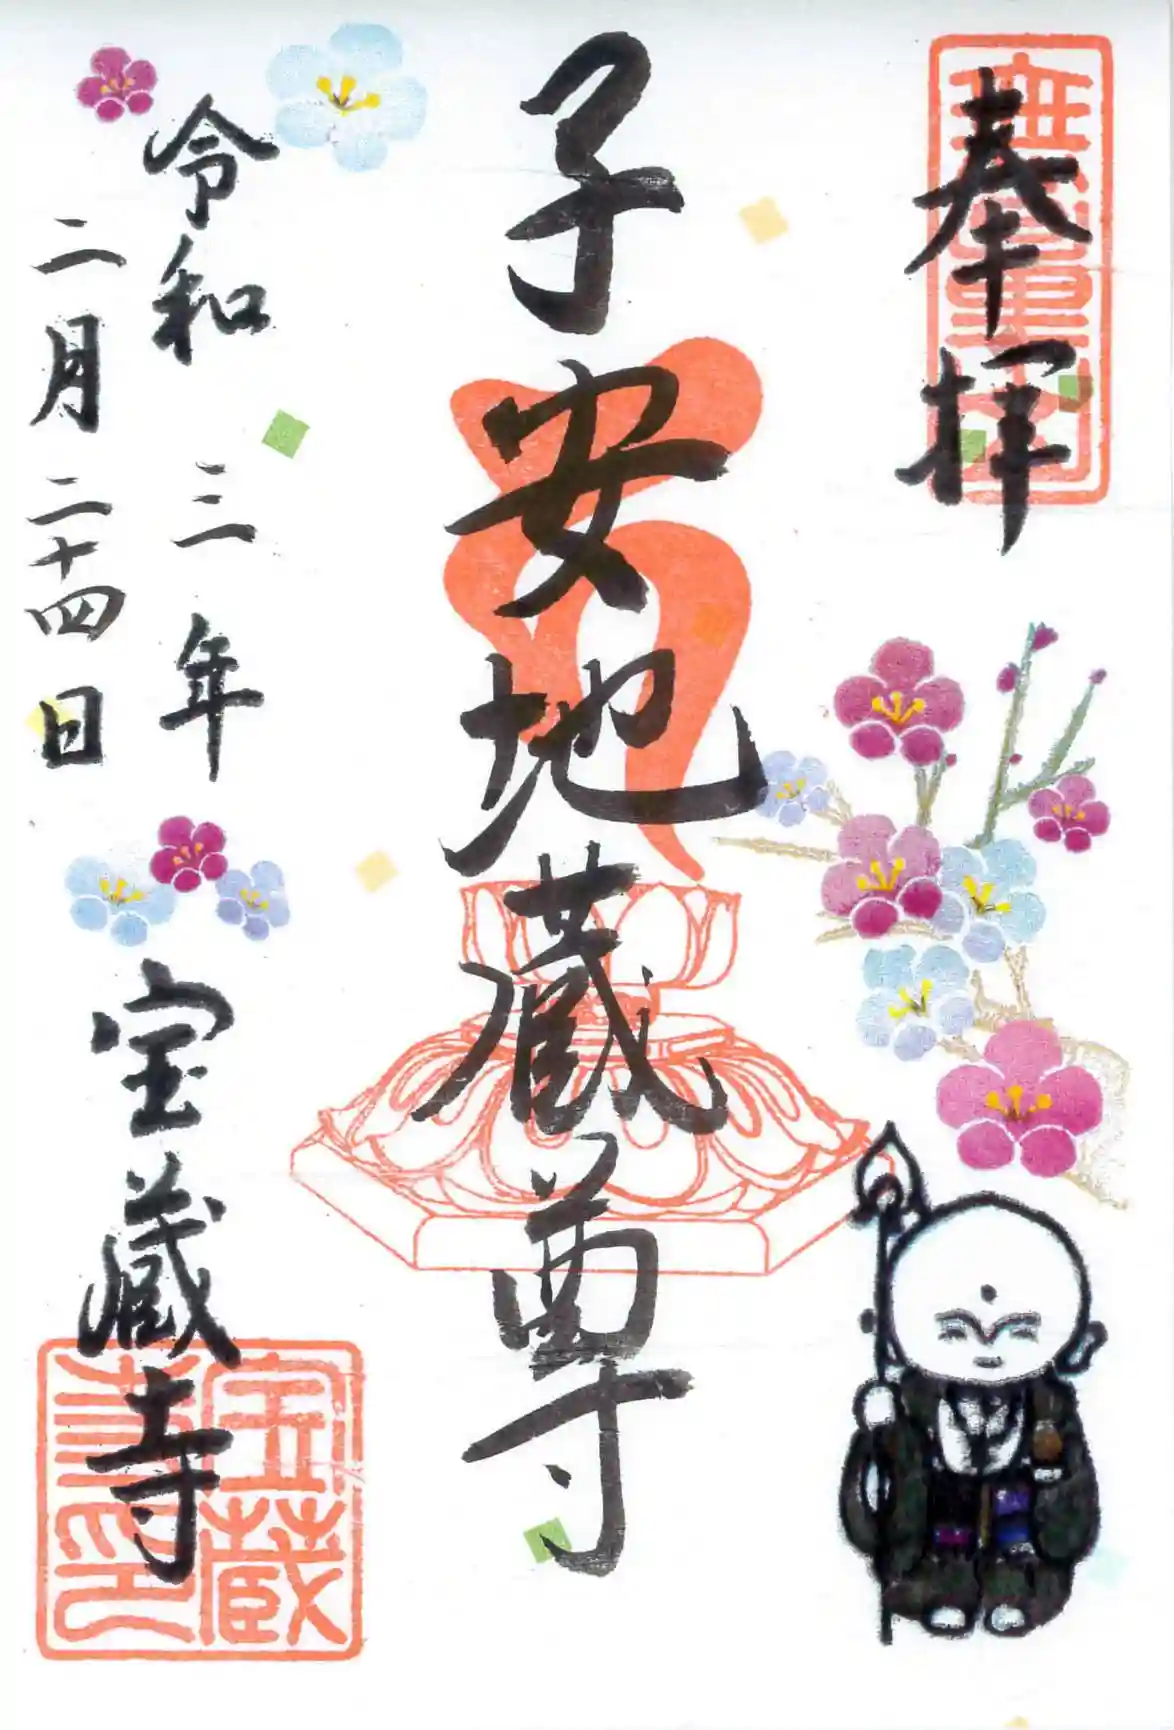 奉拝
子安地蔵尊
令和三年
二月二十四日
宝蔵寺
宝蔵
寺印